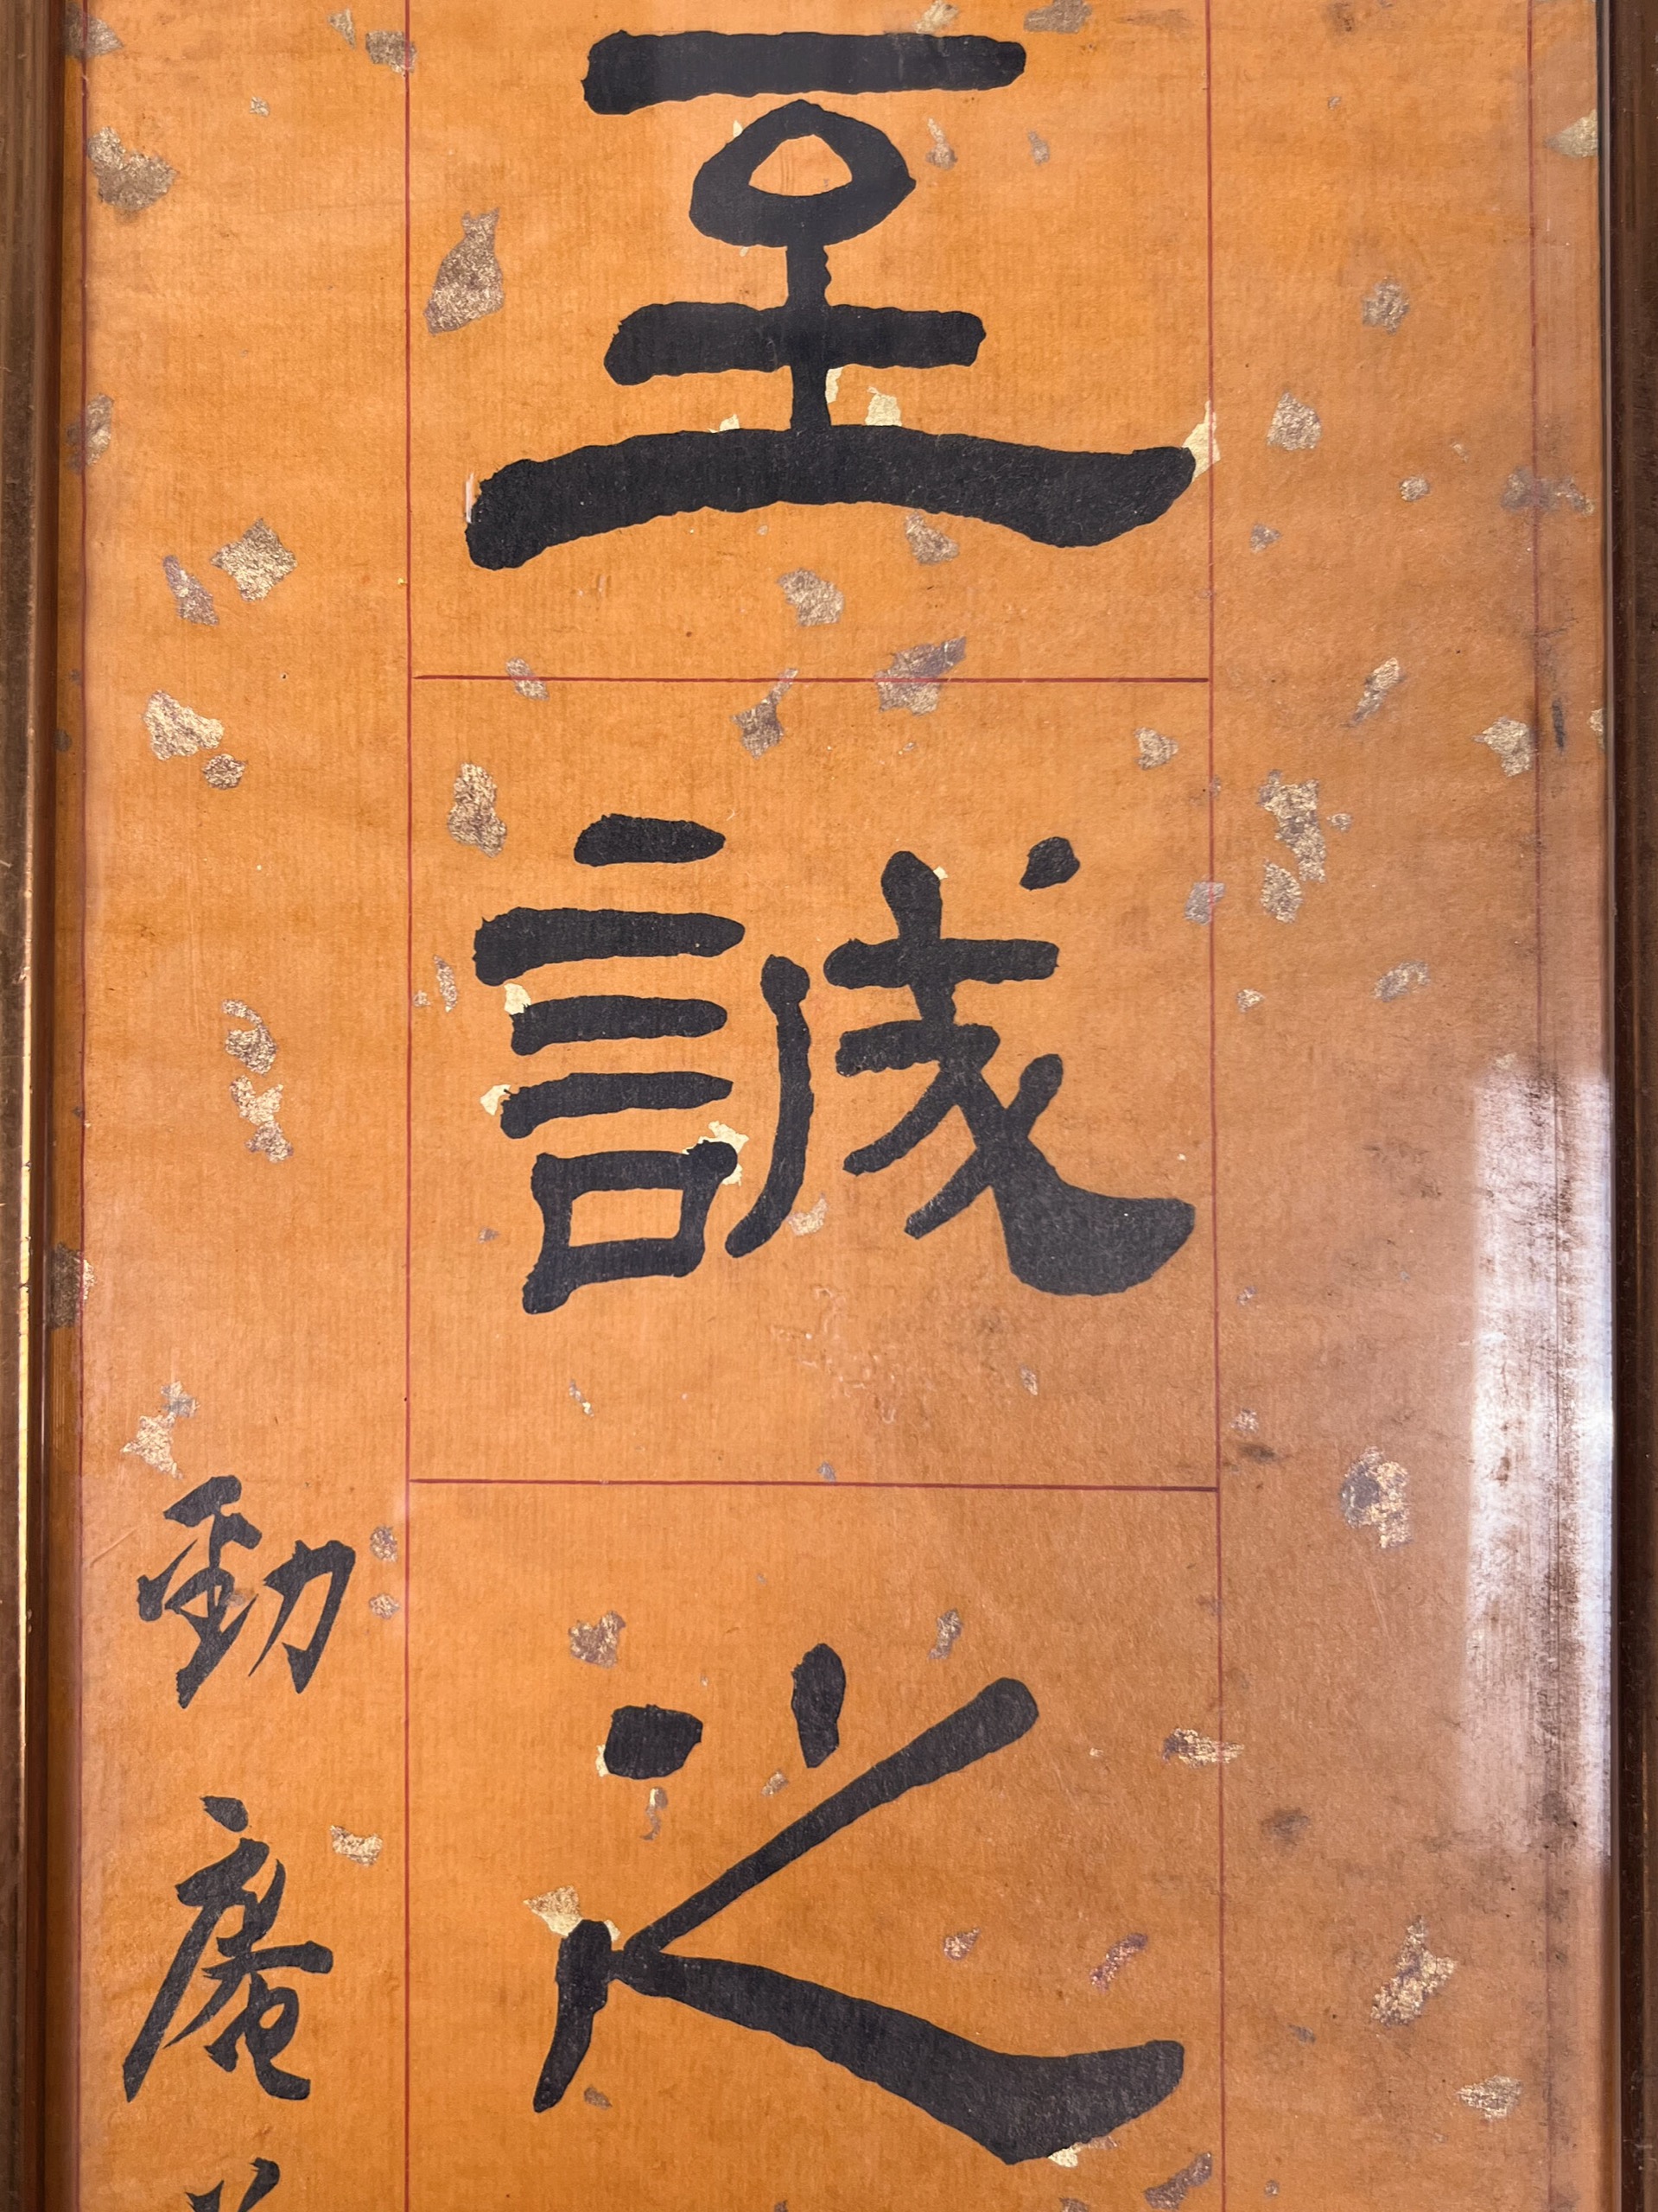 至誠之
勁庵